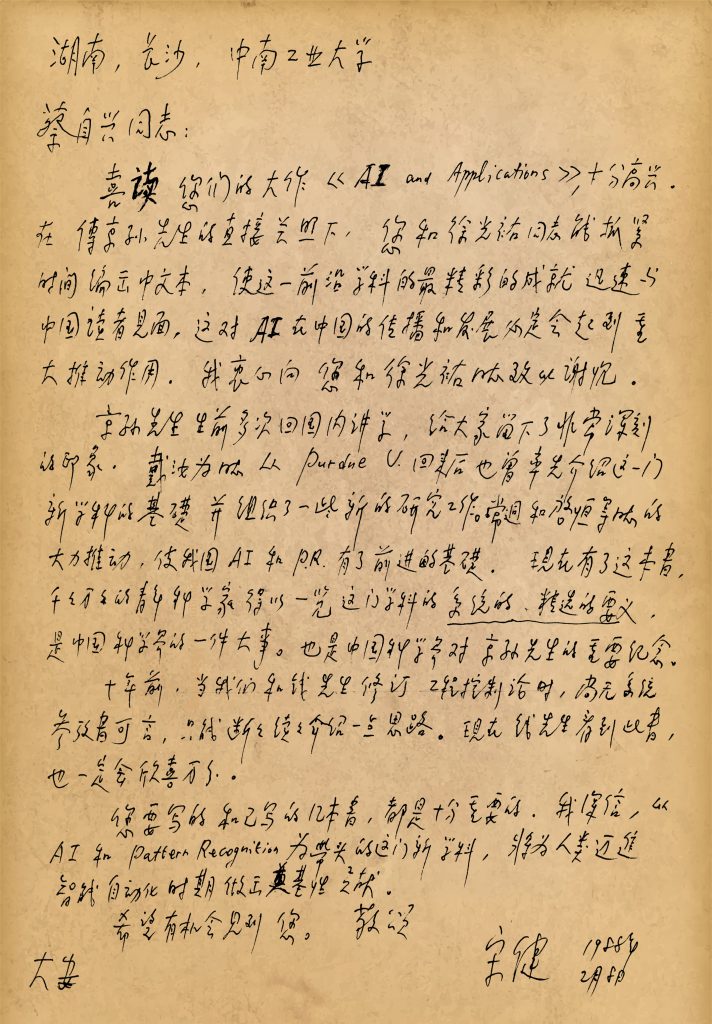 湖南，长沙，中南工业大学
蔡自兴同志：
喜读您们的大作《AI and Applications》，十分高兴.
在傅京孙先生的直接关照下，您和徐光祐同志能抓紧
时间编出中文本，使这一前沿学科的最精彩的成就迅速与
中国读者見面，这对AI在中国的传播和发展必定会起到重
大推动作用．我衷心向您和徐光祐同志致以谢忱．
京孙先生生前多次回国内讲学，给大家留下了非常深刻
的印象．戴汝为同志从 Purdue U. 回来后也曾率先介绍这一门
新学科的基礎并组织了一些新的研究工作。常迵和石青云等同志的
大力推动，使我国AI和PR.有了前进的基礎．现在有了这本書，
千千万万的青年科学家得以一览这门学科的系统的、精选的要义，
是中国科学界的一件大事。也是中国科学界对京孙先生的重要纪念。
十年前，当我们和钱先生修订工程控制论时，尚无系统
参攷書可言，只能断断续续介绍一点思路。现在钱先生看到此書，
也一定会欣喜万分．
您要写的和已写的几本書，都是十分重要的．我深信，以
AI和Pattern Recognition为带头的这门新学科，将为人类迈進
智能自动化时期做出奠基性贡献．
希望有机会見到您。 敬颂
大安
宋健 1988年
2月8日